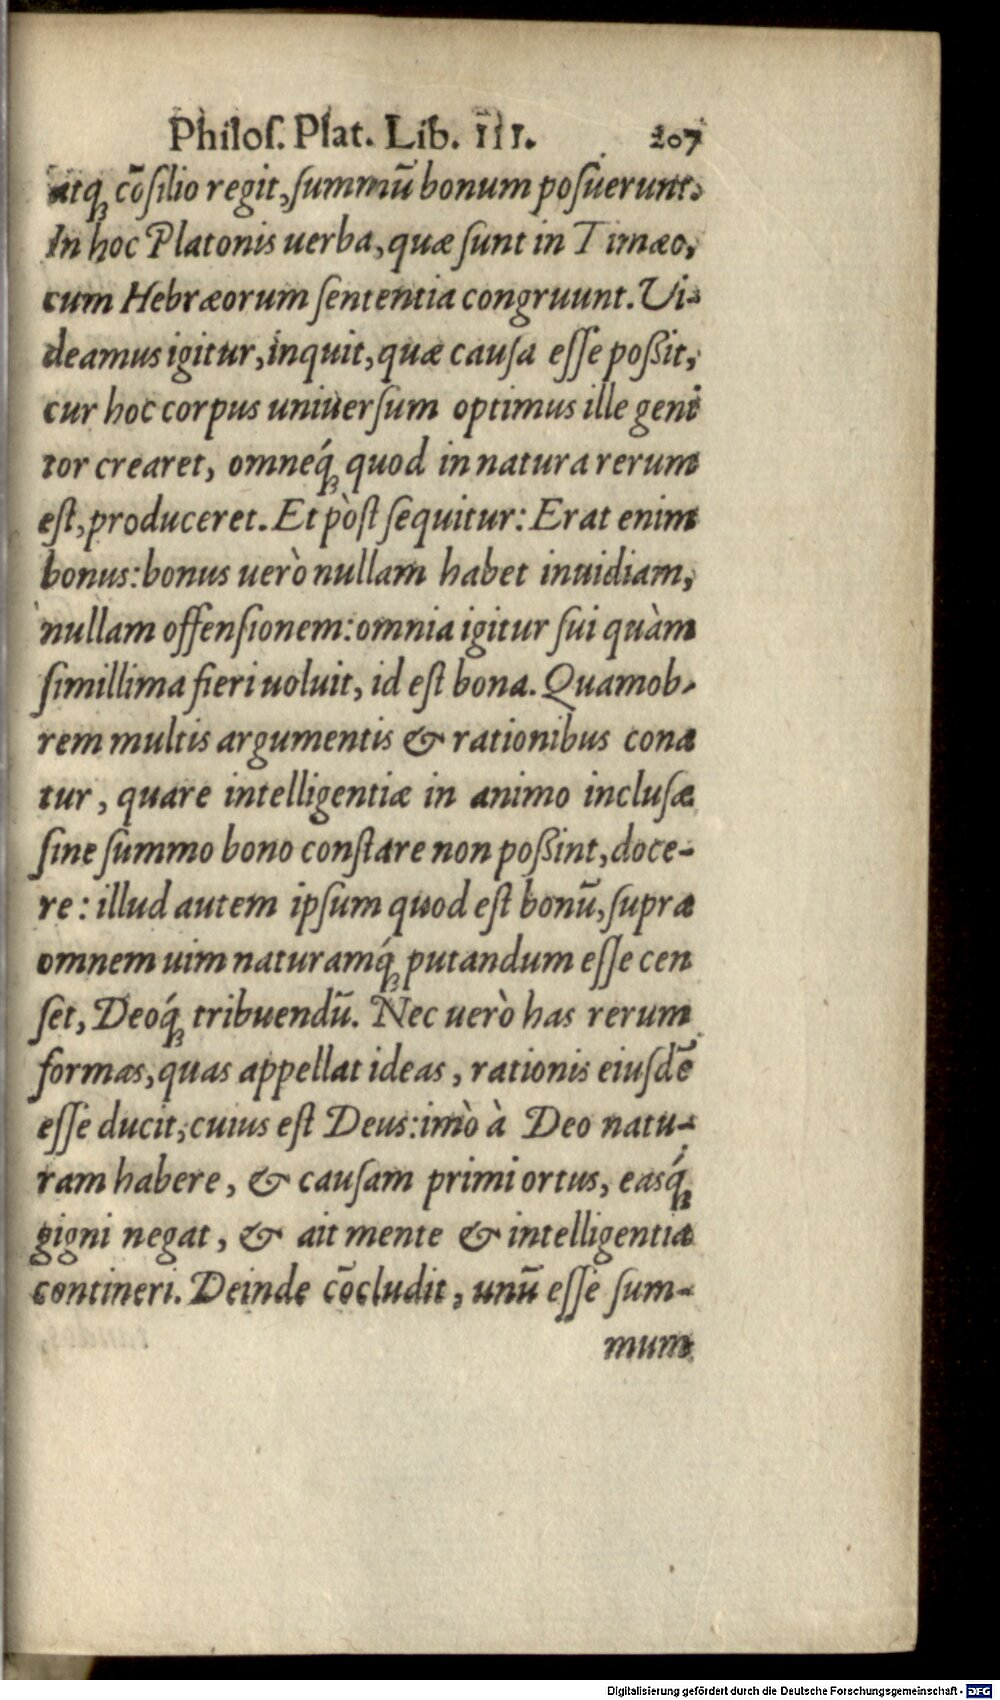 Philoſ. Plat. Lib. III. 207
atq́ꝫ cōſilio regit, ſummū bonum poſuerunt.
In hoc Platonis uerba, quæ ſunt in Timæo,
cum Hebræorum ſententia congruunt. Ui-
deamus igitur, inquit, quæ cauſa eſſe poßit,
cur hoc corpus uniuerſum optimus ille geni
tor crearet, omneq́ꝫ quod in natura rerum
eſt, produceret. Et pòſt ſequitur: Erat enim
bonus: bonus uerò nullam habet inuidiam,
nullam offenſionem: omnia igitur ſui quàm
ſimillima fieri uoluit, id eſt bona. Quamob-
rem multis argumentis & rationibus cona
tur, quare intelligentiæ in animo incluſæ
ſine ſummo bono conſtare non poßint, doce-
re: illud autem ipſum quod eſt bonū, ſupra
omnem uim naturamq́ꝫ putandum eſſe cen
ſet, Deoq́ꝫ tribuendū. Nec uerò has rerum
formas, quas appellat ideas, rationis eiuſdē
eſſe ducit, cuius eſt Deus: imò à Deo natu-
ram habere, & cauſam primi ortus, easq́ꝫ
gigni negat, & ait mente & intelligentia
contineri. Deinde cōcludit, unū eſſe ſum-
mum
Digitalisierung gefördert durch die Deutsche Forschungsgemeinschaft - DFG